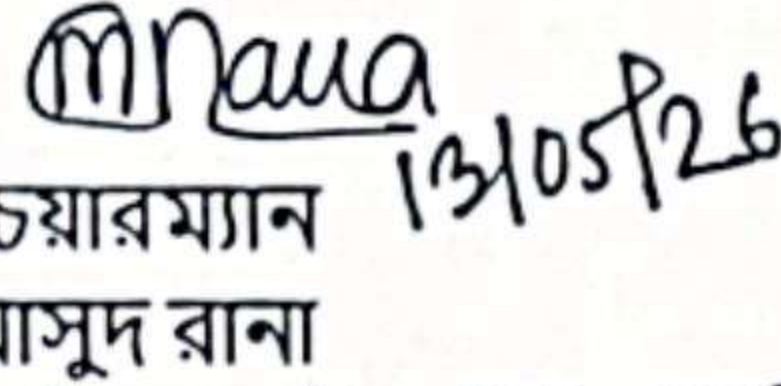 MRana
13/05/26
চেয়ারম্যান
মাসুদ রানা